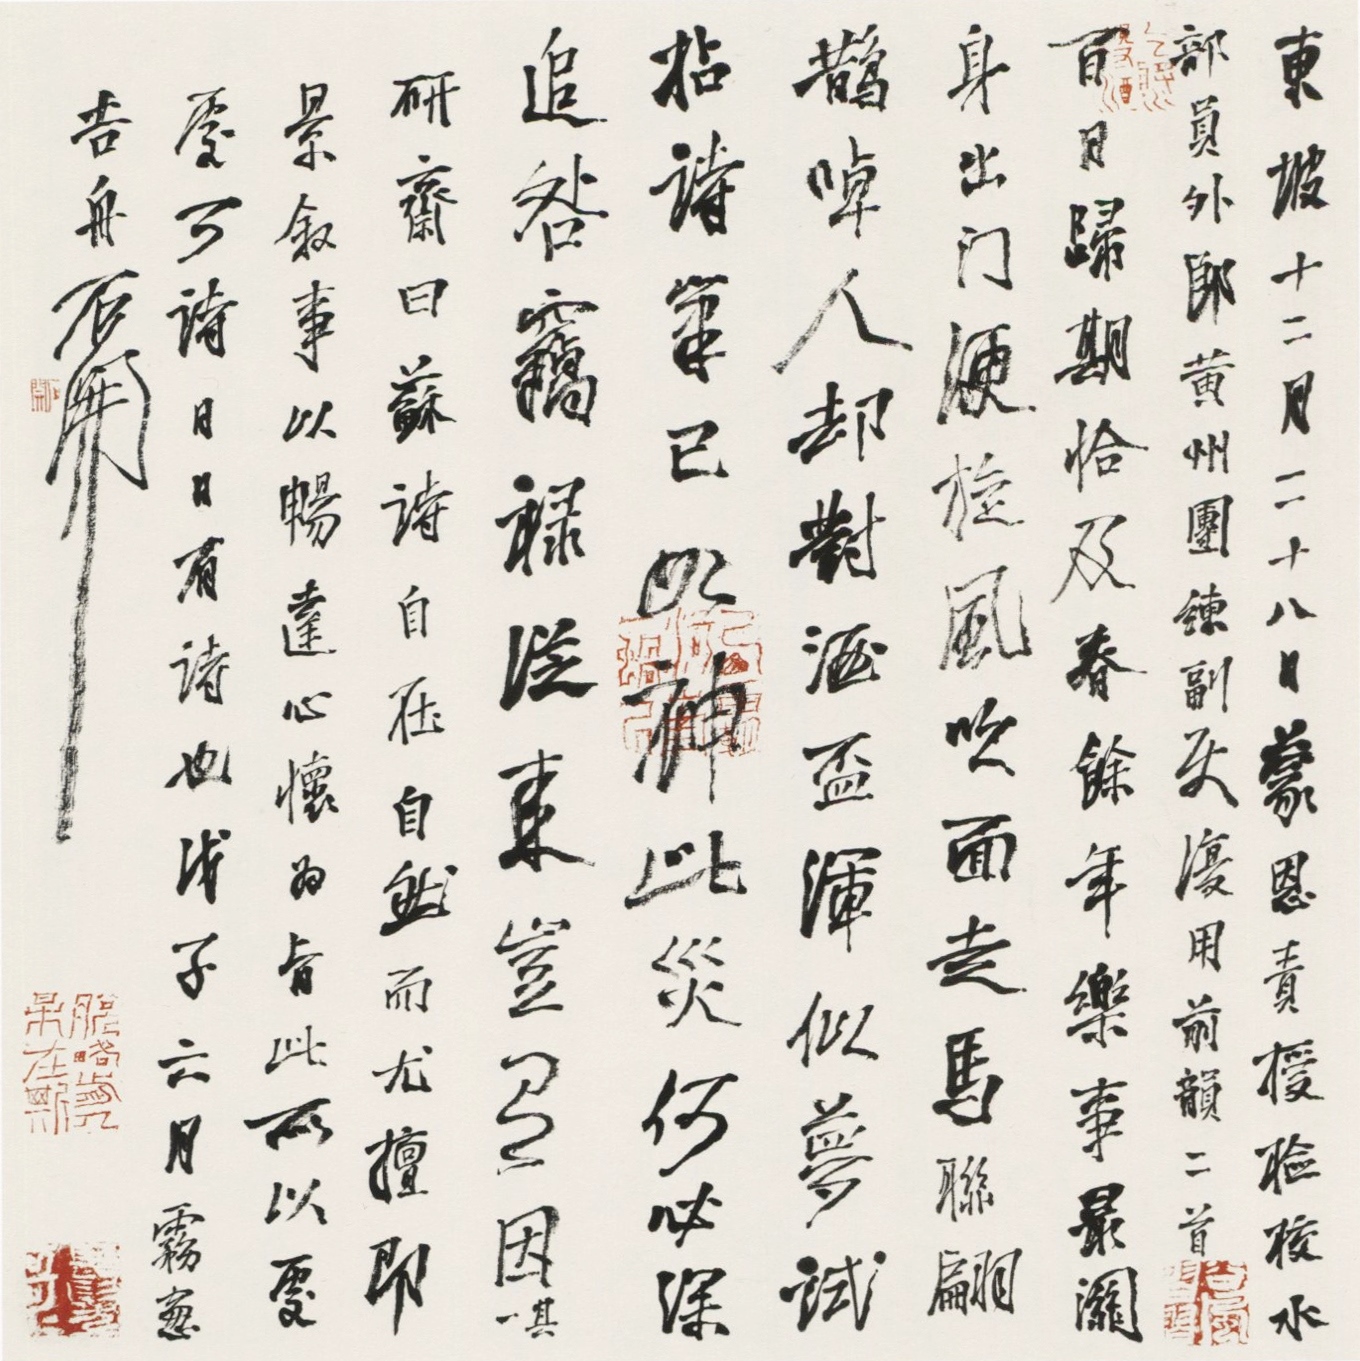 東坡十二月二十八日蒙恩責授檢校水
部員外郎黄州團練副史復用前韻二首
百日歸期恰及春餘年樂事最關
身出门便旋風吹面走馬聯翩
鵲啅人却對酒盃渾似夢試
拈詩筆已如神此災何必深
追咎竊禄從來豈有因 其一
研齋曰蘇詩自在自然而尤擅即
景叙事以暢達心懷為旨此所以處
處可詩日日有詩也戊子六月霧窗
吉舟石開